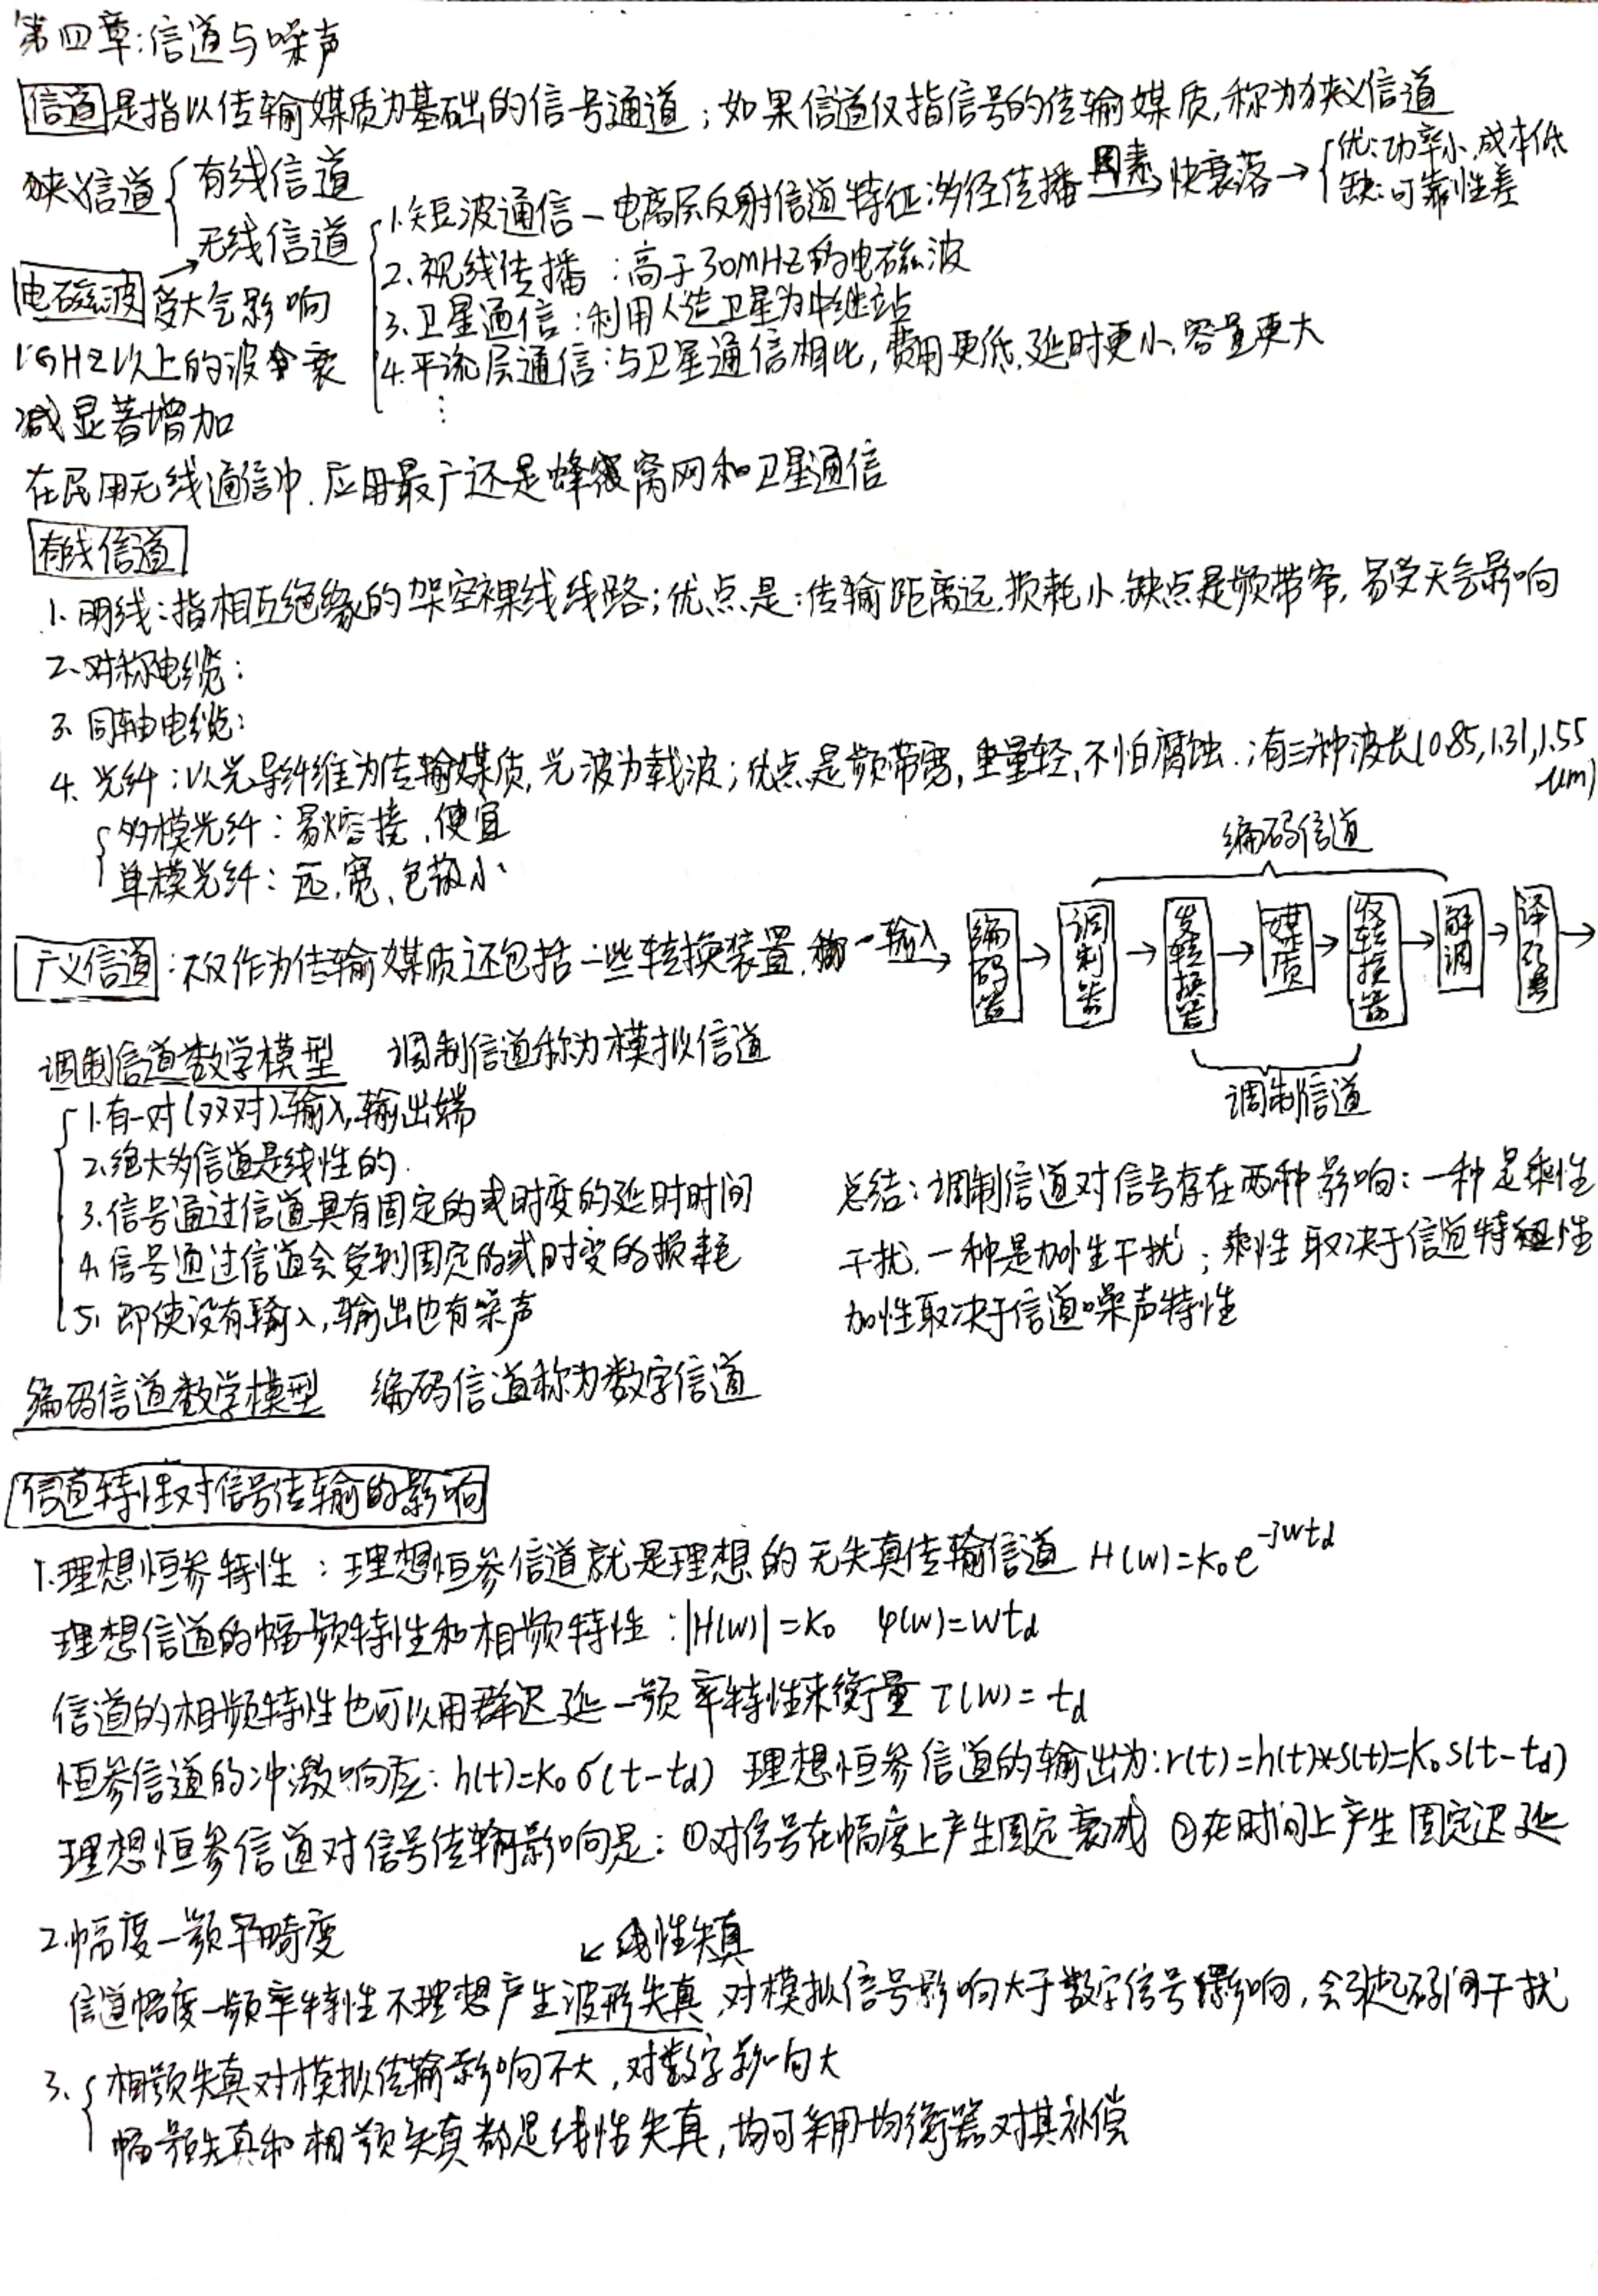 第四章:信道与噪声
信道是指以传输媒质为基础的信号通道;如果信道仅指信号的传输媒质,称为狭义信道
狭义信道 有线信道
无线信道
1.短波通信—电离层反射信道特征:多径传播 因素 快衰落→ 优:功率小,成本低
缺:可靠性差
2.视线传播:高于30MHZ的电磁波
3.卫星通信:利用人造卫星为中继站
4.平流层通信:与卫星通信相比,费用更低,延时更小,容量更大
⋮
电磁波→受大气影响
1GHZ以上的波会衰
减显著增加
在民用无线通信中,应用最广还是蜂窝网和卫星通信
有线信道
1.明线:指相互绝缘的架空裸线线路;优点是:传输距离远,损耗小.缺点是频带窄,易受天气影响
2.对称电缆:
3.同轴电缆:
4.光纤:以光导纤维为传输媒质,光波为载波;优点是频带宽,重量轻,不怕腐蚀.;有三种波长(0.85,1.31,1.55
um)
多模光纤:易熔接,便宜
单模光纤:远,宽,色散小
广义信道:不仅作为传输媒质还包括一些转换装置,
输入→编码器→调制器→发转换器→媒质→收转换器→解调→译码器→
编码信道
调制信道
调制信道数学模型 调制信道称为模拟信道
1.有一对(或对)输入,输出端
2.绝大多信道是线性的.
3.信号通过信道具有固定的或时变的延时时间
4.信号通过信道会受到固定的或时变的损耗
5.即使没有输入,输出也有噪声
总结:调制信道对信号存在两种影响:一种是乘性
干扰,一种是加性干扰;乘性取决于信道特性
加性取决于信道噪声特性
编码信道数学模型 编码信道称为数字信道
信道特性对信号传输的影响
1.理想恒参特性:理想恒参信道就是理想的无失真传输信道 H(w)=K₀e^{-jwtd}
理想信道的幅频特性和相频特性:|H(w)|=K₀ φ(w)=wtd
信道的相频特性也可以用群迟延—频率特性来衡量 τ(w)=td
恒参信道的冲激响应:h(t)=K₀δ(t-td) 理想恒参信道的输出为:r(t)=h(t)*s(t)=K₀s(t-td)
理想恒参信道对信号传输影响是:①对信号在幅度上产生固定衰减 ②在时间上产生固定迟延
2.幅度—频率畸变
↙线性失真
信道幅度—频率特性不理想产生波形失真,对模拟信号影响大于数字信号影响,会引起码间干扰
3.相频失真对模拟传输影响不大,对数字影响大
幅频失真和相频失真都是线性失真,均可采用均衡器对其补偿